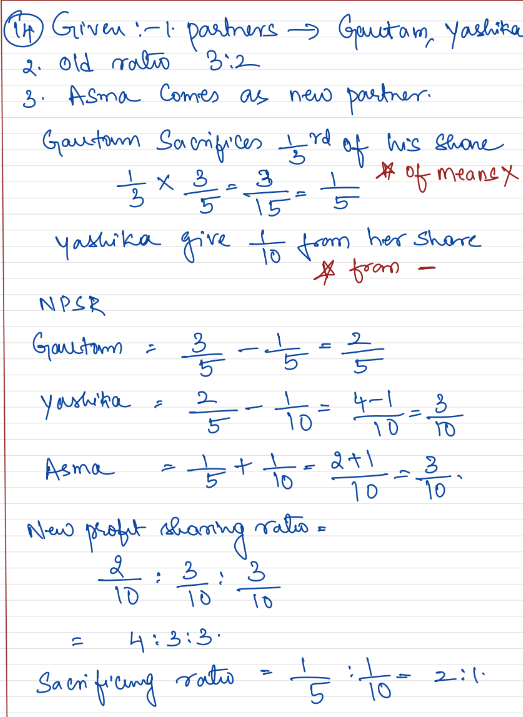 14 Given :- 1. partners → Gautam, Yashika
2. Old ratio 3:2
3. Asma Comes as new partner.
Gautam Sacrifices 1/3 rd of his share
1/3 × 3/5 = 3/15 = 1/5 * of means ×
Yashika give 1/10 from her share
* from −
NPSR
Gautam = 3/5 − 1/5 = 2/5
Yashika = 2/5 − 1/10 = 4-1/10 = 3/10
Asma = 1/5 + 1/10 = 2+1/10 = 3/10.
New profit sharing ratio =
2/10 : 3/10 : 3/10
= 4:3:3.
Sacrificing ratio = 1/5 : 1/10 = 2:1.